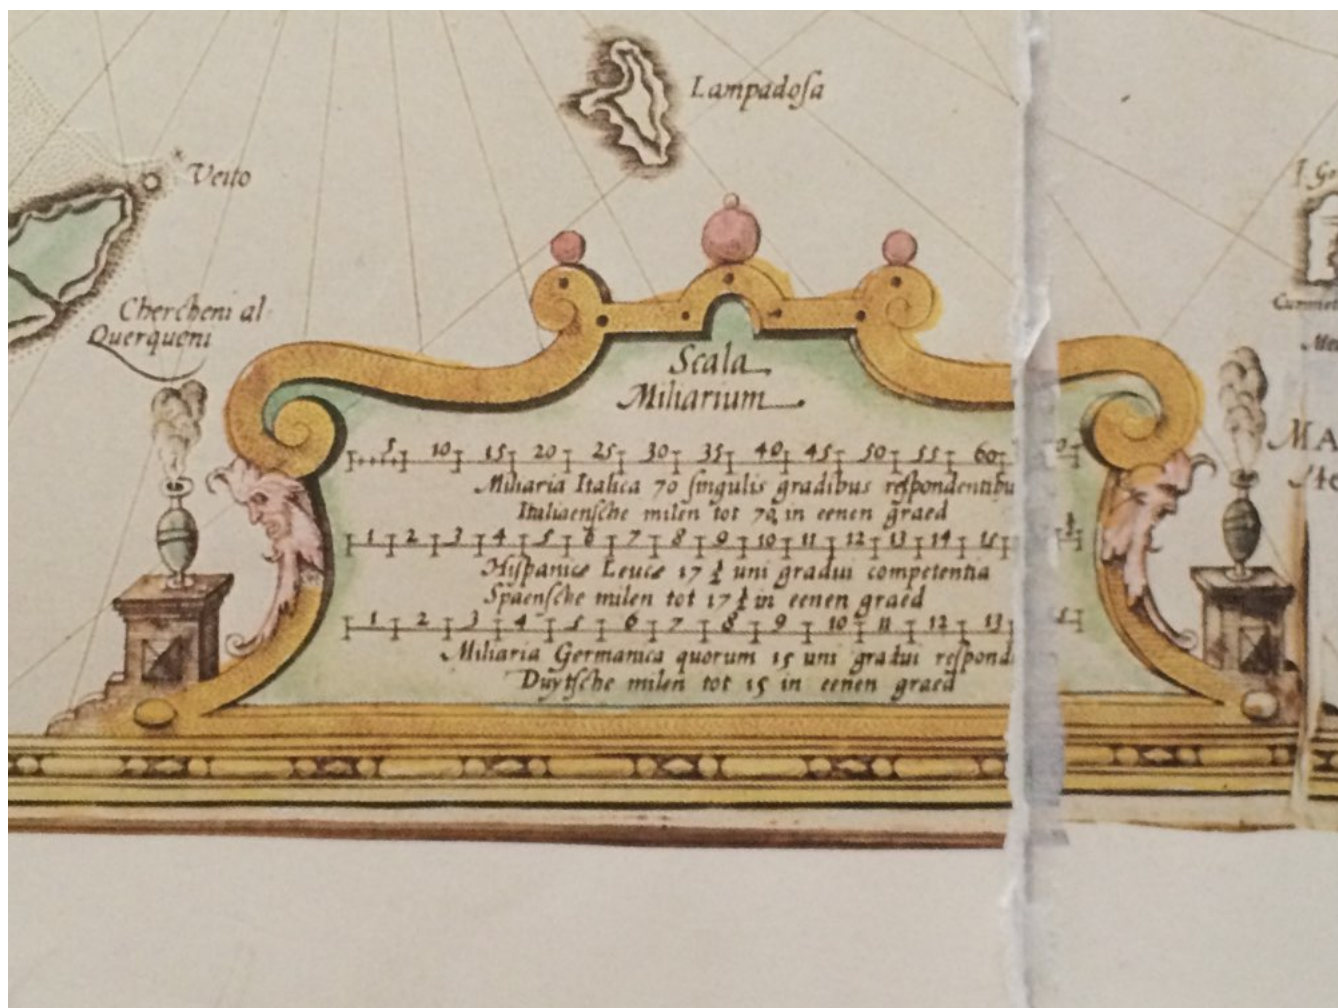 Lampadosa
Veito
Chercheni al
Querqueni
Scala
Miliarium
5 10 15 20 25 30 35 40 45 50 55 60
Miliaria Italica 70 singulis gradibus respondentibu
Italiaensche milen tot 70 in eenen graed
1 2 3 4 5 6 7 8 9 10 11 12 13 14 15
Hispanicæ Leucæ 17 ½ uni gradui competentia
Spaensche milen tot 17 ½ in eenen graed
1 2 3 4 5 6 7 8 9 10 11 12 13
Miliaria Germanica quorum 15 uni gradui respond
Duytsche milen tot 15 in eenen graed
I. G
MA